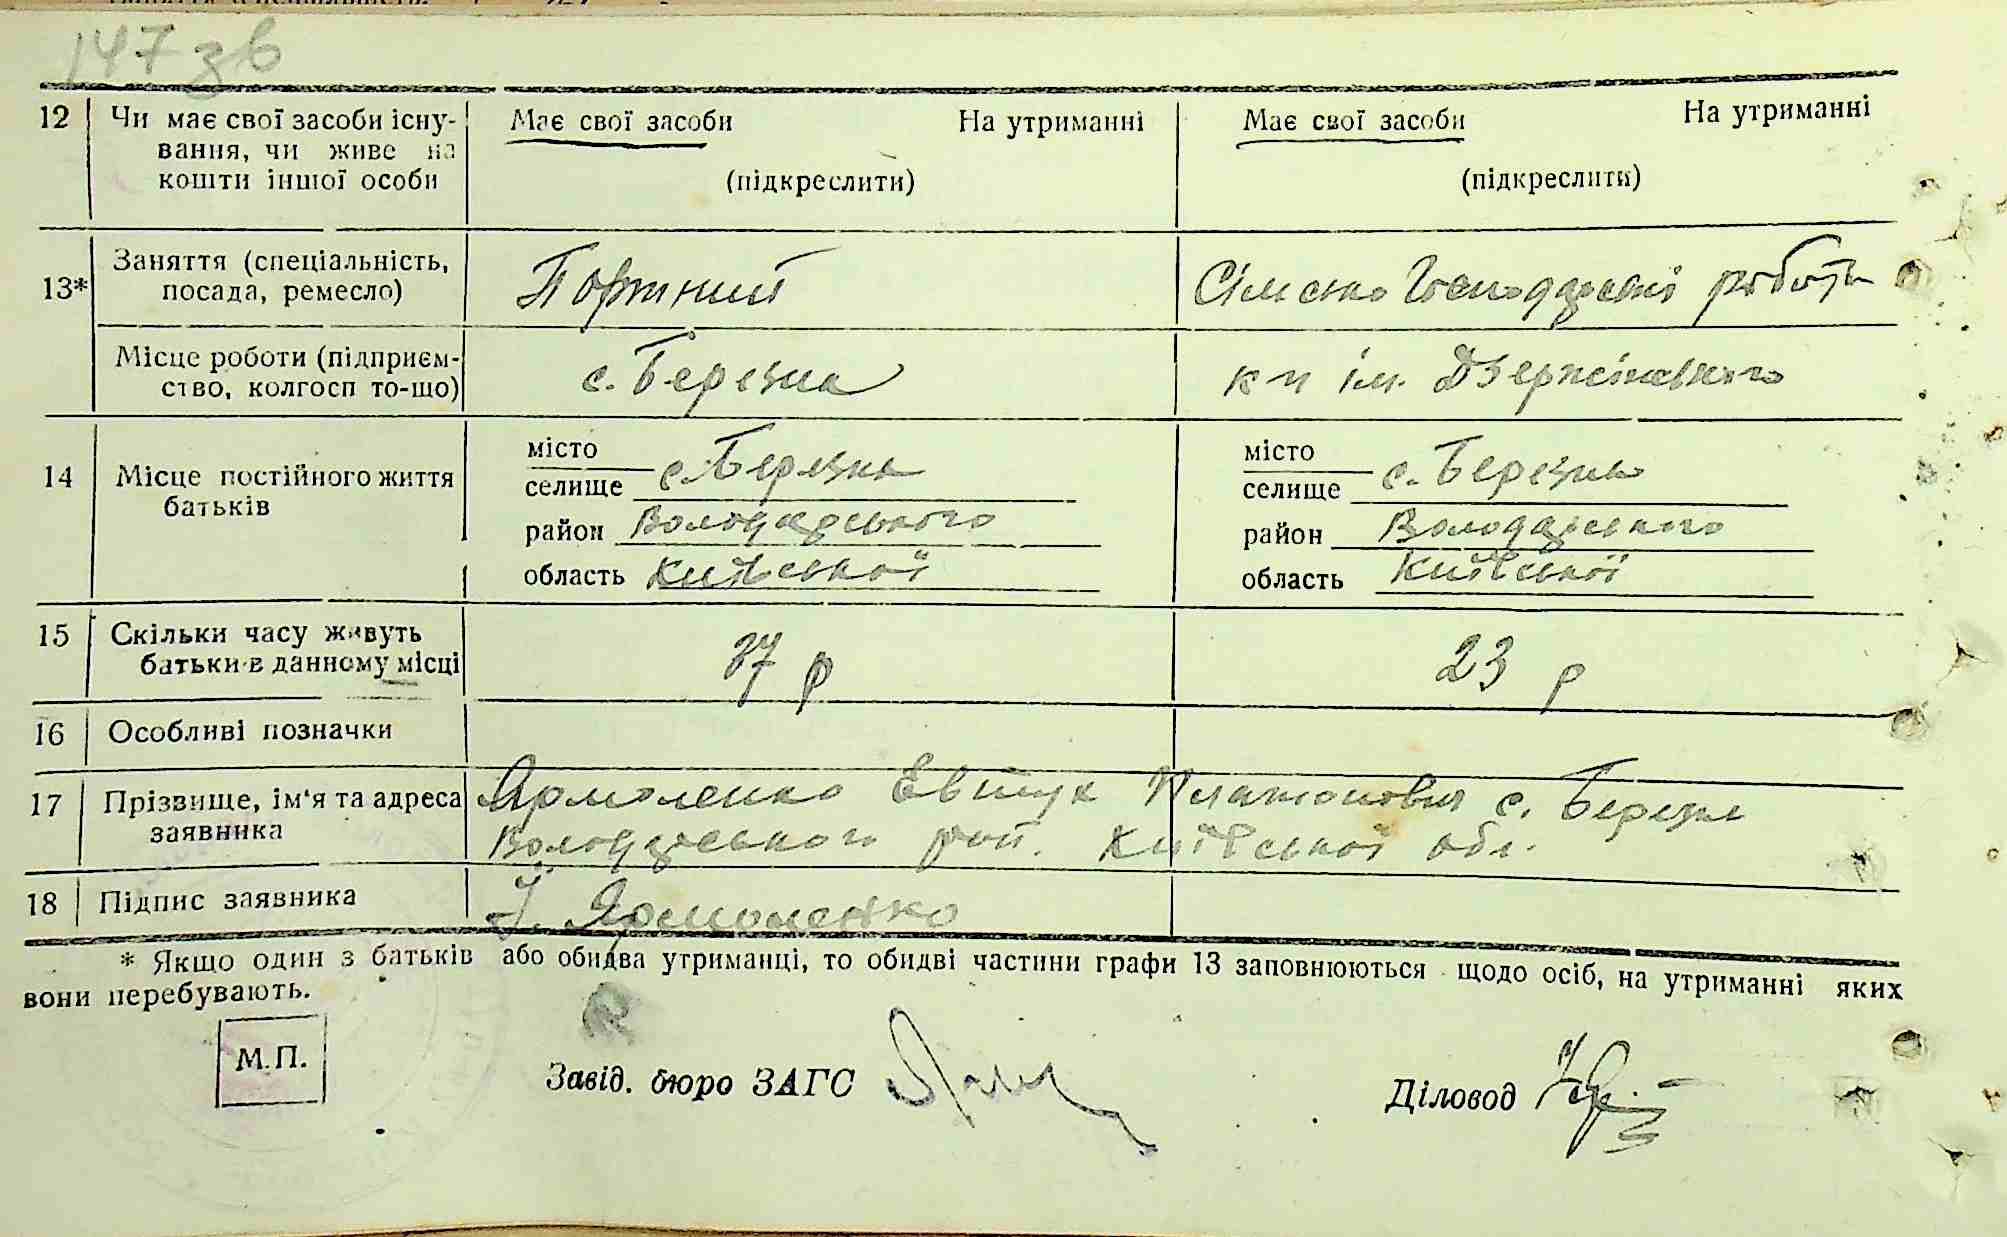 147 зв
12 Чи має свої засоби існу- Має свої засоби На утриманні Має свої засоби На утриманні
вання, чи живе на
кошти іншої особи (підкреслити) (підкреслити)
13* Заняття (спеціальність,
посада, ремесло) Портний Сільсько Господарські роботи
Місце роботи (підприєм-
ство, колгосп то-що) с. Березна к-п ім. Дзержінського
14 Місце постійного життя
батьків
місто с. Березна місто с. Березна
селище селище
район Володарського район Володарського
область Київської область Київської
15 Скільки часу живуть
батьки в данному місці 37 р 23 р
16 Особливі позначки
17 Прізвище, ім'я та адреса Ярмоленко Евтух Платонович с. Березна
заявника Володарського рай. Київської обл.
18 Підпис заявника Ярмоленко
* Якщо один з батьків або обидва утриманці, то обидві частини графи 13 заповнюються щодо осіб, на утриманні яких
вони перебувають.
М.П.
Завід. бюро ЗАГС Діловод